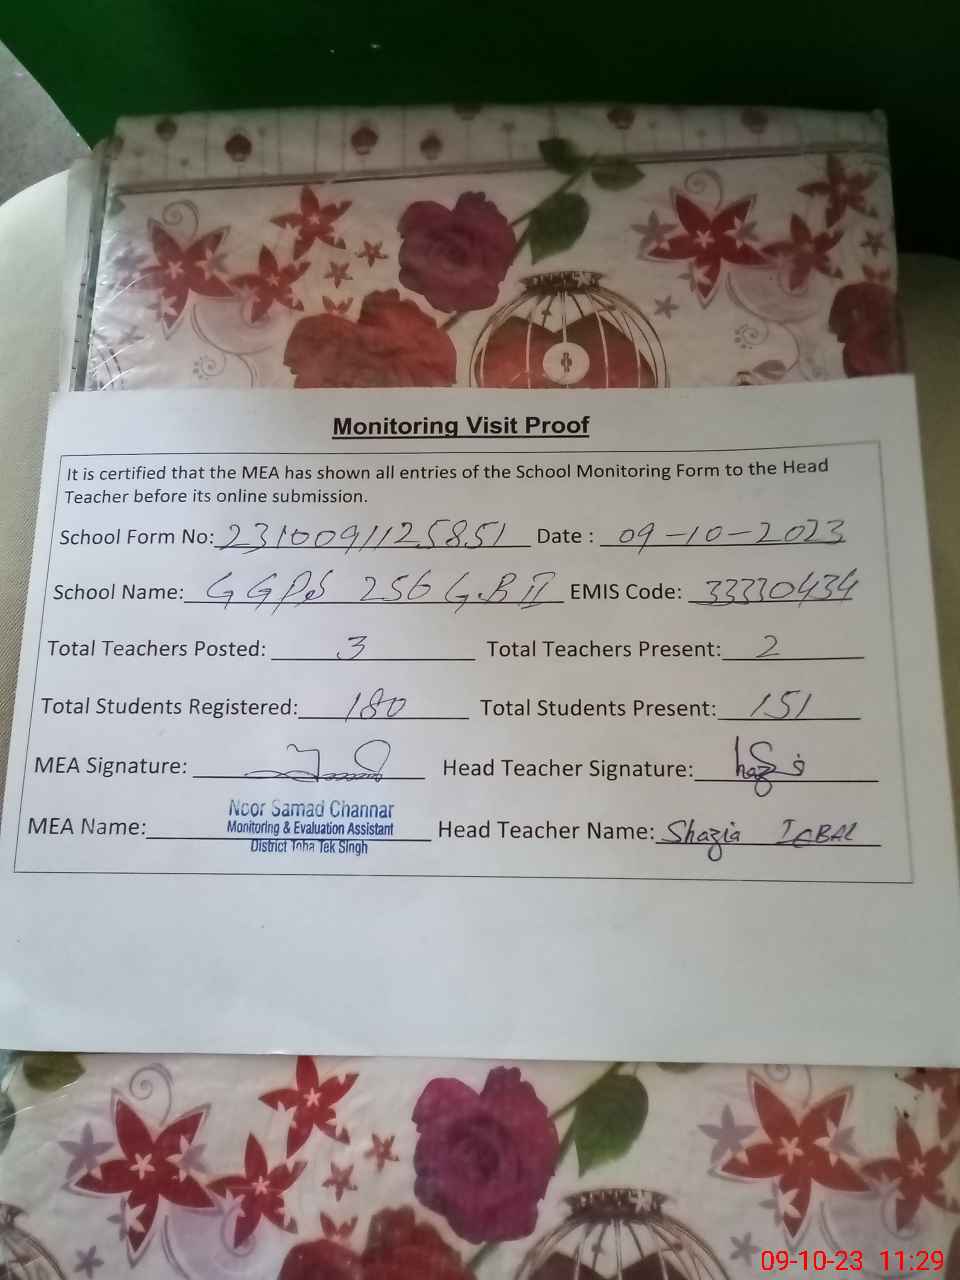 Monitoring Visit Proof
It is certified that the MEA has shown all entries of the School Monitoring Form to the Head
Teacher before its online submission.
School Form No: 2310091125851 Date : 09-10-2023
School Name: GGPS 256 G.B II EMIS Code: 33330434
Total Teachers Posted: 3 Total Teachers Present: 2
Total Students Registered: 180 Total Students Present: 151
MEA Signature: Head Teacher Signature:
MEA Name: Noor Samad Channar
Monitoring & Evaluation Assistant
District Toba Tek Singh
Head Teacher Name: Shazia IQBAL
09-10-23 11:29